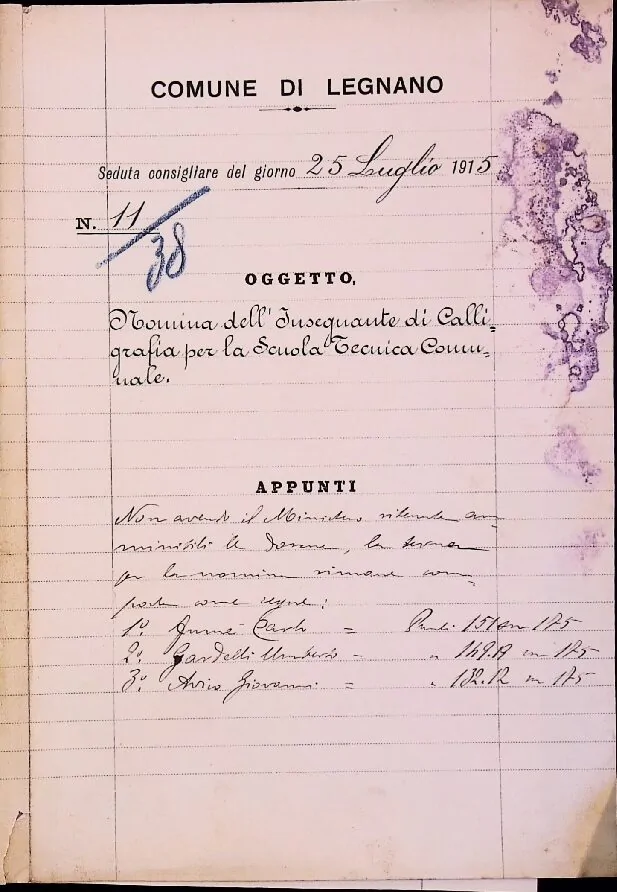 COMUNE DI LEGNANO
Seduta consigliare del giorno 25 Luglio 1915
N. 11
38
OGGETTO,
Nomina dell'Insegnante di Calli=
grafia per la Scuola Tecnica Comu=
nale.
APPUNTI
Non avendo il Ministero ritenute am
minibili le donne, la terna
per la nomina rimane com
posta come segue:
1º. Carlo = Punti 151 su 175
2º. Gardelli Umberto - " 149.17 su 175
3º. Giovanni = " 132.12 su 175